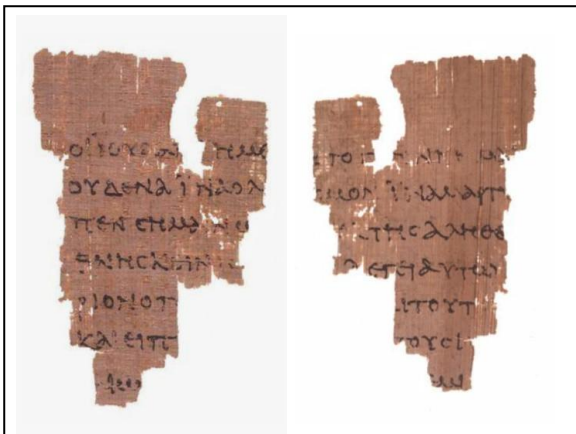 ΟΙ ΙΟΥΔΑΙ ΗΜΕ
ΟΥΔΕΝΑ ΙΝΑ Ο Λ
ΠΕΝ ϹΗΜΑΙΝΩ
ΘΝΗϹΚΕΙΝ
ΡΙΟΝ Ο Π
ΚΑΙ ΕΙΠ
ϹΜΟΝ ΙΝΑ ΜΑΡΤΥ
ΤΗϹ ΑΛΗΘΕ
ΛΕΓΕΙ ΑΥΤΩ
ΑΙ ΤΟΥΤ
ΤΟΥϹ Ι